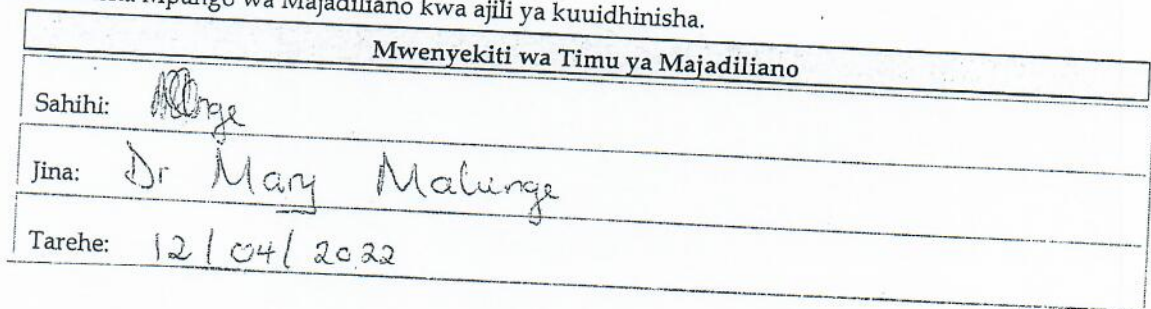 Mpango wa Majadiliano kwa ajili ya kuuidhinisha.
Mwenyekiti wa Timu ya Majadiliano
Sahihi:
Jina: Dr Mary Malunge
Tarehe: 12/04/2022